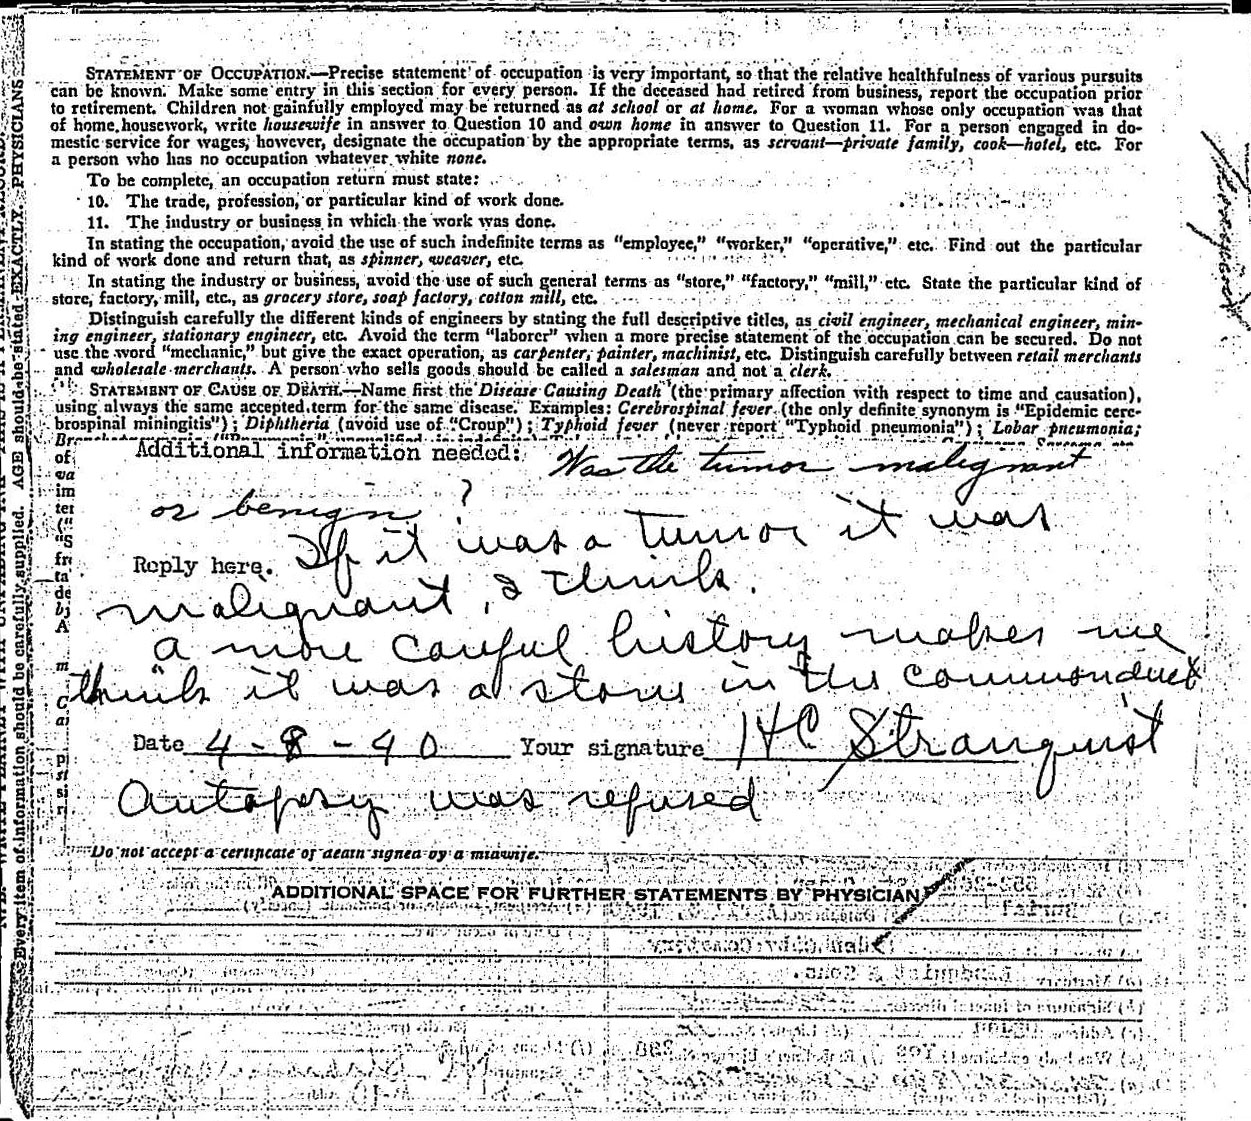 STATEMENT OF OCCUPATION.—Precise statement of occupation is very important, so that the relative healthfulness of various pursuits
can be known. Make some entry in this section for every person. If the deceased had retired from business, report the occupation prior
to retirement. Children not gainfully employed may be returned as at school or at home. For a woman whose only occupation was that
of home housework, write housewife in answer to Question 10 and own home in answer to Question 11. For a person engaged in do-
mestic service for wages, however, designate the occupation by the appropriate terms, as servant—private family, cook—hotel, etc. For
a person who has no occupation whatever white none.
To be complete, an occupation return must state:
10. The trade, profession, or particular kind of work done.
11. The industry or business in which the work was done.
In stating the occupation, avoid the use of such indefinite terms as "employee," "worker," "operative," etc. Find out the particular
kind of work done and return that, as spinner, weaver, etc.
In stating the industry or business, avoid the use of such general terms as "store," "factory," "mill," etc. State the particular kind of
store, factory, mill, etc., as grocery store, soap factory, cotton mill, etc.
Distinguish carefully the different kinds of engineers by stating the full descriptive titles, as civil engineer, mechanical engineer, min-
ing engineer, stationary engineer, etc. Avoid the term "laborer" when a more precise statement of the occupation can be secured. Do not
use the word "mechanic," but give the exact operation, as carpenter, painter, machinist, etc. Distinguish carefully between retail merchants
and wholesale merchants. A person who sells goods should be called a salesman and not a clerk.
STATEMENT OF CAUSE OF DEATH.—Name first the Disease Causing Death (the primary affection with respect to time and causation),
using always the same accepted term for the same disease. Examples: Cerebrospinal fever (the only definite synonym is "Epidemic cere-
brospinal miningitis"); Diphtheria (avoid use of "Croup"); Typhoid fever (never report "Typhoid pneumonia"); Lobar pneumonia;
Additional information needed: Was the tumor malignant
or benign?
Reply here. If it was a tumor it was
malignant, I think.
A more careful history makes me
think it was a stone in the common duct
Date 4-8-40 Your signature HC Stranquist
Autopsy was refused
Do not accept a certificate of death signed by a midwife.
ADDITIONAL SPACE FOR FURTHER STATEMENTS BY PHYSICIAN
Every item of information should be carefully supplied. AGE should be stated EXACTLY. PHYSICIANS